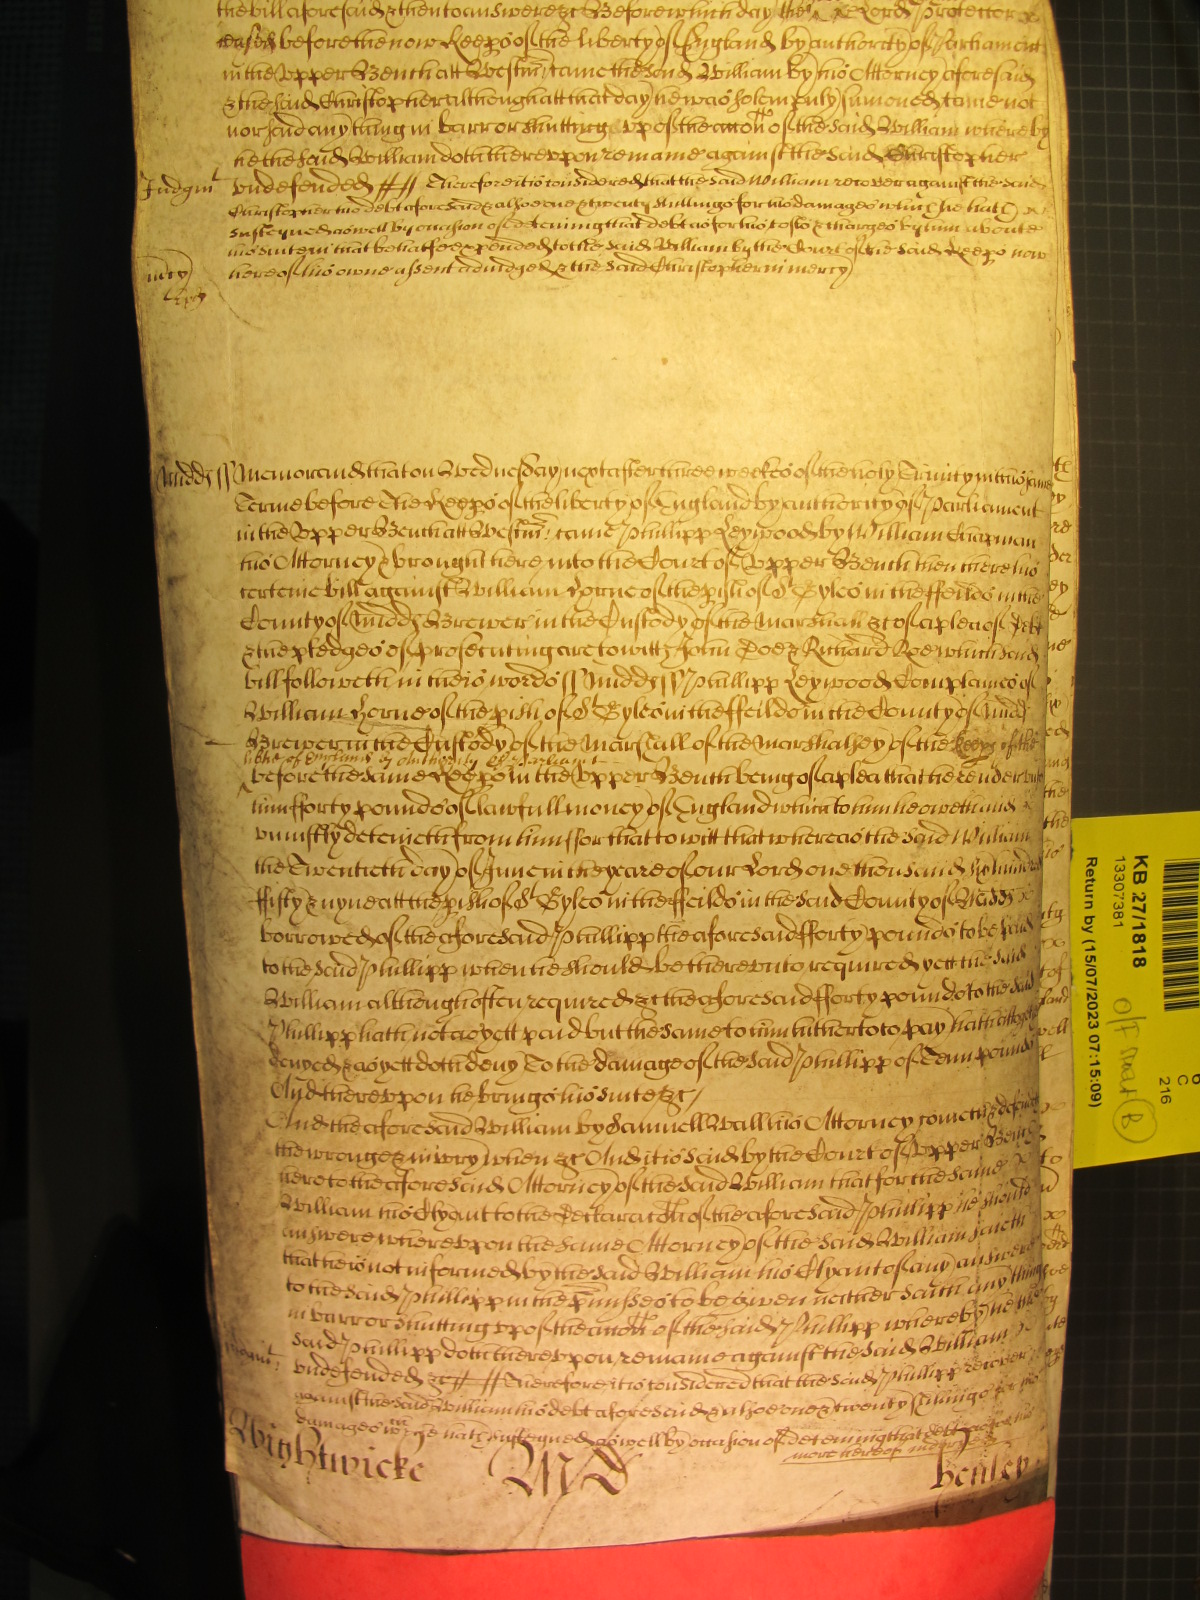 the bill aforesaid & then to answere &c Before which day the Lord Protector
ceased before the now Keeps of the liberty of England by authority of Parliament
in the Upper Bench att Westm came the said William by his Attorney aforesaid
& the said Christopher although att that day he was solempnly sumoned came not
nor said any thing in barr or shutting vp of the accon of the said William whereby
he the said William doth therevpon remaine against the said Christopher
Judgmt vndefended Therefore it is considered that the said William recover against the said
Christopher his debt aforesaid & alsoe one & twenty shillings for his damages which he hath
susteyned aswell by occasion of deteyning that debt as for his costs & charges by him about
his suite in that behalfe expended to the said William by the Court of the said Keeps now
mcy here of his owne assent adiudged & the said Christopher in mercy
Midds ss Memorand that on Wednesday next after three weekes of the holy Trinity in this same
Terme before The Keeps of the liberty of England by authority of Parliament
in the Vpper Bench att Westm: came Phillipp Leywood by William Chapman
his Attorney & brought here into the Court of Vpper Bench then there his
certeine bill against William Horne of the pish of St Gyles in the ffeilds in the
County of Midds Brewer in the Custody of the Marshall &c of a plea of Debt
& the pledges of prosecuting are to witt John Doe & Richard Roe which said
bill followeth in theis words ss Midds ss Phillipp Leywood Complaines of
William Horne of the pish of St Gyles in the ffeilds in the County of Midd
Brewer in the Custody of the Marshall of the Marshalsey of the Keeps of the
libtie of England by authority of Parliament
before the same Keeps in the Vpper Bench being of a plea that he render vnto
him fforty pounds of lawfull money of England which to him he oweth and
vniustly deteineth from him ffor that to witt that whereas the said William
the Twentieth day of June in the yeare of our Lord one thousand six hundred
ffifty & nyne att the pish of St Gyles in the ffeilds in the said County of Midds
borrowed of the aforesaid Phillipp the aforesaid fforty pounds to be paid
to the said Phillipp when he should be therevnto required yett the said
William although often required &c the aforesaid fforty pounds to the said
Phillipp hath not as yett paid but the same to him hitherto to pay hath altogether
denyed & as yett doth deny To the damage of the said Phillipp of Tenn pounds
And therevpon he brings his suite &c
And the aforesaid William by Samuell Wall his Attorney cometh & defends
the wrong & iniury when &c And it is said by the Court of Vpper Bench
here to the aforesaid Attorney of the said William that for the same
William his Clyant to the Declaracon of the aforesaid Phillipp he should
answere wherevpon the same Attorney of the said William saieth
that he is not informed by the said William his Clyant of any answere
to the said Phillipp in the pmisses to be given neither saith any thing
in barr or shutting vp of the accon of the said Phillipp whereby he the
said Phillipp doth therevpon remaine against the said William
Judgmt: vndefended &c Therefore it is considered that the said Phillipp recover
against the said William his debt aforesaid & alsoe one & twenty shillings for his
damages wch he hath susteyned aswell by occasion of deteyning that debt as for his
more hereof
Wightwicke MD Henley
KB 27/1818
13307381
Return by (15/07/2023 07:15:09)
C
216
B